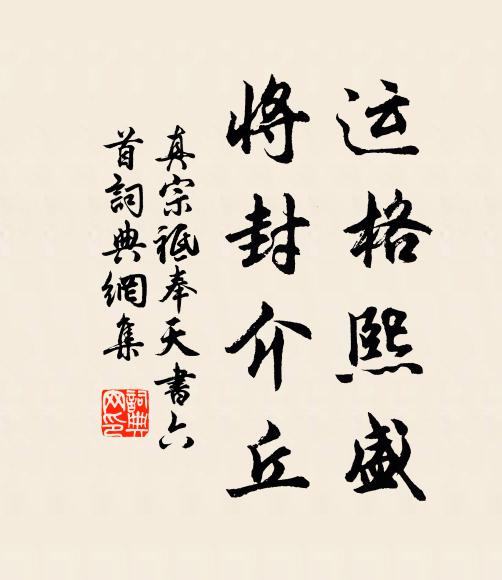 运格熙盛
将封介丘
真宗祗奉天书六
首詞典網集
詞典
网印